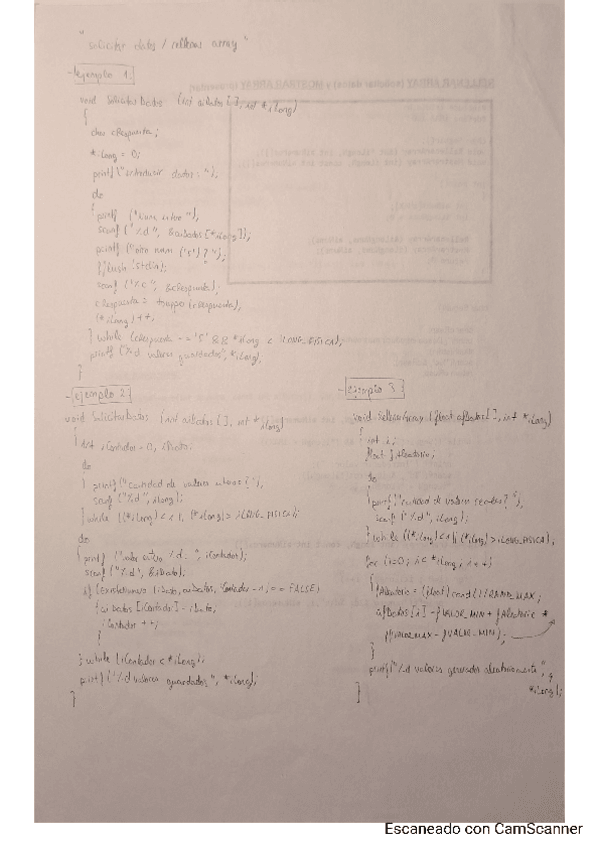 "solicitar datos / rellenar array"
- Ejemplo 1
void SolicitarDatos (int aiDatos[], int *iLong)
{
char cRespuesta;
*iLong = 0;
printf ("introducir datos: ");
do
{ printf ("
scanf ("%d", &aiDatos[*iLong]);
printf ("otro num ('s')?");
fflush (stdin);
scanf ("%c", &cRespuesta);
cRespuesta = toupper(cRespuesta);
(*iLong)++;
} while (cRespuesta == 'S' && *iLong < iLONG_FISICA);
printf ("%d valores guardados", *iLong);
}
- ejemplo 2
void SolicitarDatos (int aiDatos[], int *iLong)
{ int iContador = 0, iDato;
do
{ printf ("cantidad de valores enteros?");
scanf ("%d", iLong);
} while ((*iLong) < 1 || (*iLong) > iLONG_FISICA);
do
{ printf ("valor entero %d: ", iContador);
scanf ("%d", &iDato);
if (iDato, aiDatos, iContador - 1) == FALSE)
{ aiDatos [iContador] = iDato;
iContador ++;
}
} while (iContador < *iLong);
printf ("%d valores guardados", *iLong);
}
- ejemplo 3
void (float afDatos[], int *iLong)
{ int i;
float fAleatorio;
do
{ printf ("cantidad de valores reales?");
scanf ("%d", iLong);
} while ((*iLong) < 1 || (*iLong) > iLONG_FISICA);
for (i=0; i < *iLong; i++)
{ fAleatorio = (float) rand() / RAND_MAX;
afDatos [i] = fVALOR_MIN + fAleatorio *
(fVALOR_MAX - fVALOR_MIN);
}
printf ("%d valores generados aleatoriamente",
*iLong);
}
Escaneado con CamScanner